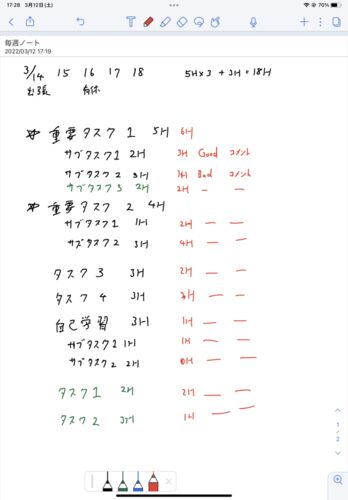 17:28 3月12日(土) 70%
毎週ノート
2022/03/12 17:19
3/14 15 16 17 18 5H×3 + 3H = 18H
出張 有休
重要タスク1 5H 6H
サブタスク1 2H 3H Good コメント
サブタスク2 3H Bad コメント
サブタスク3 2H 2H — —
重要タスク2 4H
サブタスク1 1H 2H — —
サブタスク2 3H 4H — —
タスク3 3H 2H — —
タスク4 3H — —
自己学習 3H 1H — —
サブタスク1 1H 1H — —
サブタスク2 2H 0H — —
タスク1 2H 2H — —
タスク2 3H 1H — —
1
2